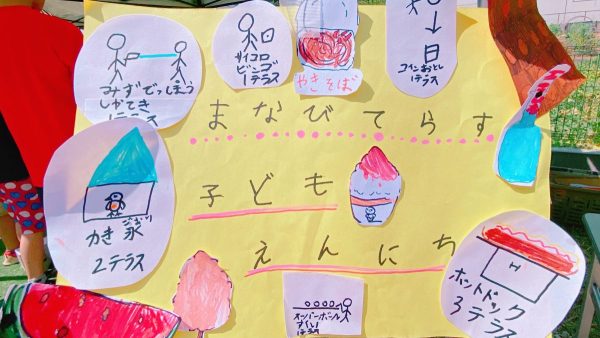 みずでっぽう
しゃてき
1テラス
サイコロ
ビンゴ
1テラス
やきそば
コインおとし
1テラス
まなびてらす
子ども
えんにち
かき氷
ごおり
2テラス
スーパーボール
すくい
1テラス
ホットドック
3テラス